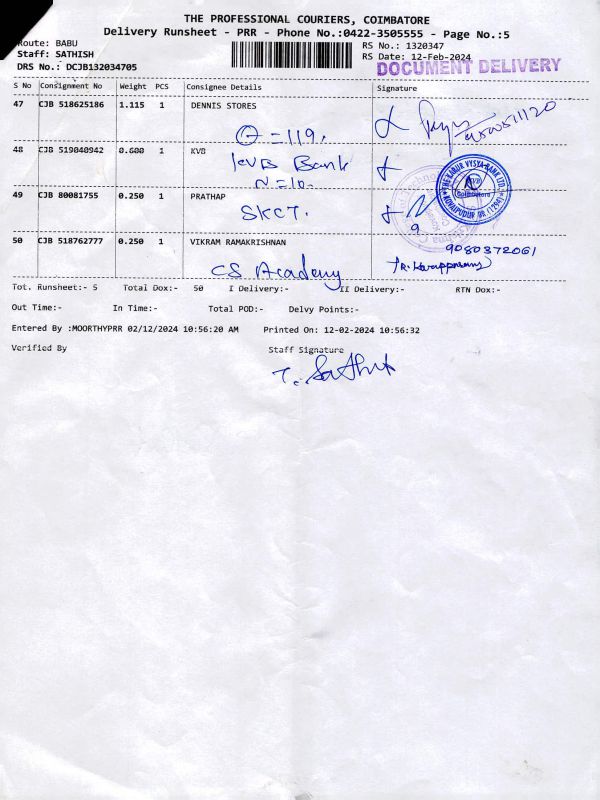 THE PROFESSIONAL COURIERS, COIMBATORE
Delivery Runsheet - PRR - Phone No.:0422-3505555 - Page No.:5
Route: BABU
RS No.: 1320347
Staff: SATHISH
RS Date: 12-Feb-2024
DRS No.: DCJB132034705
DOCUMENT DELIVERY
S No Consignment No Weight PCS Consignee Details Signature
47 CJB 518625186 1.115 1 DENNIS STORES
=119.
48 CJB 519040942 0.600 1 KVB
KVB Bank
N=10.
THE KARUR VYSYA BANK LTD.
49 CJB 80081755 0.250 1 PRATHAP
SKCT.
9
50 CJB 518762777 0.250 1 VIKRAM RAMAKRISHNAN
9080372061
CS Academy
Tot. Runsheet:- 5 Total Dox:- 50 I Delivery:- II Delivery:- RTN Dox:-
Out Time:- In Time:- Total POD:- Delvy Points:-
Entered By :MOORTHYPRR 02/12/2024 10:56:20 AM Printed On: 12-02-2024 10:56:32
Verified By Staff Signature
T. Sathish